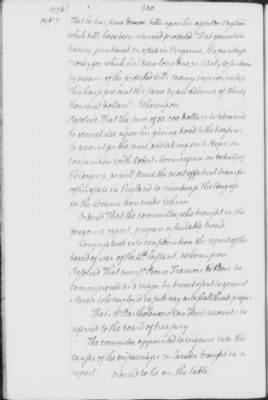 1776 920
Oct. 7 That he has some [bills] upon his agent in England
which bills have been returned protested That general Lee
having purchased an estate in Virginia the purchase
money for which has been long due, is likely to be injured
by means of the protested bills &
this house present the same by an advance of thirty
thousand dollars: Whereupon
Resolved That the sum of 30.000 dollars be advanced
to general Lee upon his giving bond to the treasurer
to account for the same, and taking such steps, in
conjunction with Robert Morris esquire on behalf of
the Congress, as will secure the most effectual transfer
of his estate in England to reimburse the Congress
for the advance now made to him
Ordered That the committee, who brought in the
foregoing report, prepare a suitable bond.
Congress took into consideration the report of the
board of war of the 4th instant, whereupon
Resolved That monsr Pierre Francois de Bois be
commissioned as a major by brevet & sent to general
to be employed in such way as he shall think proper.
That Bartholomew Von account be
referred to the board of treasury
The committee appointed to enquire into the
causes of the miscarriages in Canada brought in a
report. Ordered to lie on the table.